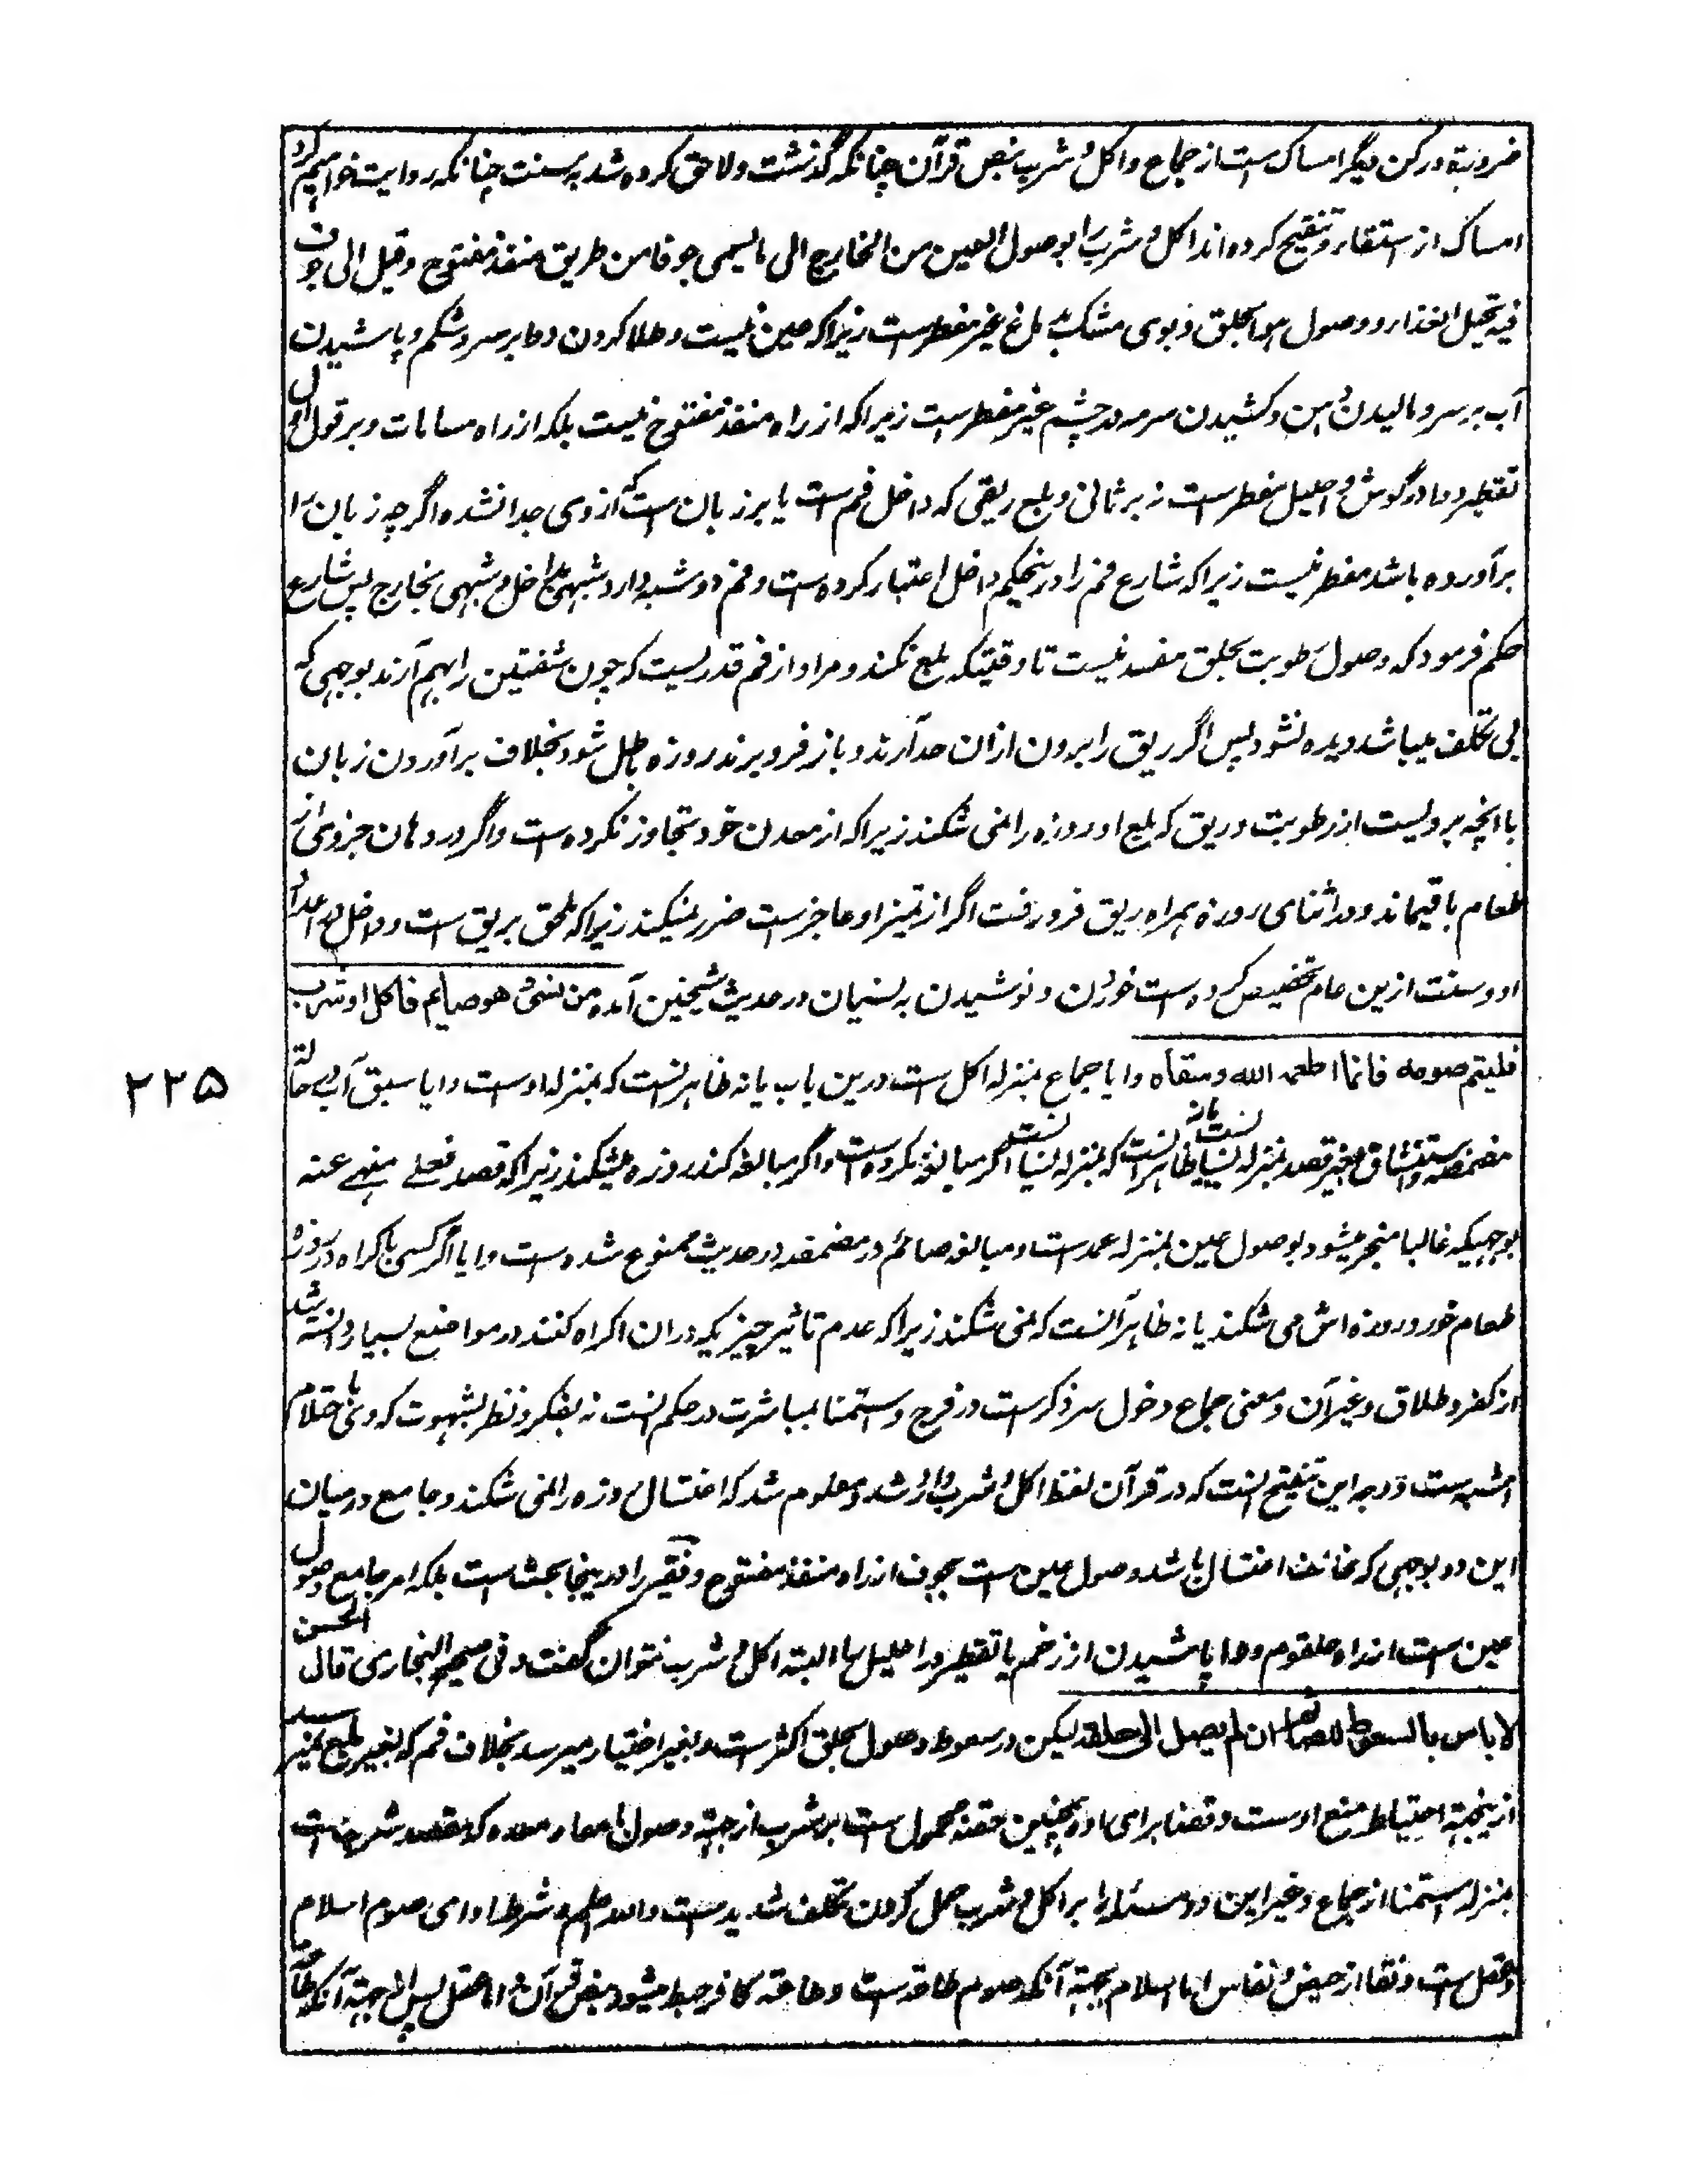 ضروبة و رکن دیگر امساک است از جماع و اکل و شرب بنص قرآن چنانکه گذشت و لاحق کرده شد بسنت چنانکه روایت خواهیم کرد
امساک از استقاء و تنقیح کرده اند اکل و شرب را بوصول العین من الخارج الی ما یسمی جوفا من طریق منفذ مفتوح و قیل الی جوف
فیه تحیل الغذاء و وصول هوا بحلق و بوی مشک بدماغ غیر مفطر است زیرا که عین نیست و طلا کردن دوا بر سر و شکم و پاشیدن
آب بر سر و مالیدن دهن و کشیدن سرمه در چشم غیر مفطر است زیرا که از راه منفذ مفتوح نیست بلکه از راه مسامات و بر قول اول
تقطیر دوا در گوش و احلیل مفطر است نه بر ثانی و بلع ریقی که داخل فم است یا بر زبان است که از وی جدا نشده اگرچه زبان را
برآورده باشد مفطر نیست زیرا که شارع فم را درینحکم داخل اعتبار کرده است و فم دو شبه دارد شبهی بداخل و شبهی بخارج پس شارع
حکم فرمود که وصول رطوبت بحلق مفسد نیست تا وقتیکه بلع نکند و مراد از فم قدریست که چون شفتین را بهم آرند بوجهی که
بی تکلف میباشد دیده نشود پس اگر ریق را برون ازان حد آرند و باز فرو برند روزه باطل شود بخلاف برآوردن زبان
با انچه برویست از رطوبت و ریق که بلع او روزه را نمی شکند زیرا که از معدن خود تجاوز نکرده است و اگر در دهان جزوی از
طعام باقیماند و در اثنای روزه همراه ریق فرو رفت اگر از تمیز او عاجز است ضرر نمیکند زیرا که ملحق بریق است و داخل در اعداد
او و سنت ازین عام تخصیص کرده است خوردن و نوشیدن به نسیان در حدیث شیخین آمده من نسی و هو صایم فاکل او شرب
فلیتم صومه فانما اطعمه الله و سقاه و ایا جماع بمنزله اکل است درین باب یا نه ظاهر آنست که بمنزله اوست و ایا سبق آب در حالت
مضمضه و استنشاق بغیر قصد بمنزله نسیان است یا نه ظاهر آنست که بمنزله نسیان است اگر مبالغه نکرده است و اگر مبالغه کند روزه میشکند زیرا که قصد فعلے منهی عنه
بوجهیکه غالبا منجر میشود بوصول عین بمنزله عمد است و مبالغه صائم در مضمضه در حدیث ممنوع شده است و ایا اگر کسی باکراه در روزه
طعام خورد روزه اش می شکند یا نه ظاهر آنست که نمی شکند زیرا که عدم تاثیر چیزیکه دران اکراه کنند در مواضع بسیار دانسته شد
از کفر و طلاق و غیر آن و معنی جماع دخول سر ذکر است در فرج و استمنا بمباشرت در حکم آنست نه بفکر و نظر بشهوت که وی باحتلام
اشبه است و وجه این تنقیح آنست که در قرآن لفظ اکل و شرب وارد شد و معلوم شد که اغتسال روزه را نمی شکند و جامع در میان
این دو بوجهی که مخالف اغتسال باشد وصول عین است بجوف از راه منفذ مفتوح و فقیر را درینجا بحث است بلکه امر جامع وصول
عین است از راه حلقوم و دوا پاشیدن از زخم یا تقطیر در احلیل را البته اکل و شرب نتوان گفت و فی صحیح البخاری قال الحسن
لا باس بالسعوط للصائم ان لم یصل الی حلقه لیکن در سعوط وصول بحلق اکثر است و بغیر اختیار میرسد بخلاف فم که بغیر بلع نمیرسد
ازینجهة احتیاط منع اوست و قضا برای او و همچنین حقنه محمول است بر شرب از جهة وصول بامعاء و معده که مقصد شرب است
بمنزله استمنا از جماع و غیر این دو مسئله را بر اکل و شرب حمل کردن تکلف شدید است والله اعلم و شرط ادای صوم اسلام
و عقل است و نقا از حیض و نفاس اما اسلام بجهة آنکه صوم طاعت است و طاعت کافر حبط میشود بنص قرآن و اما عقل پس از جهة آنکه
۲۲۵